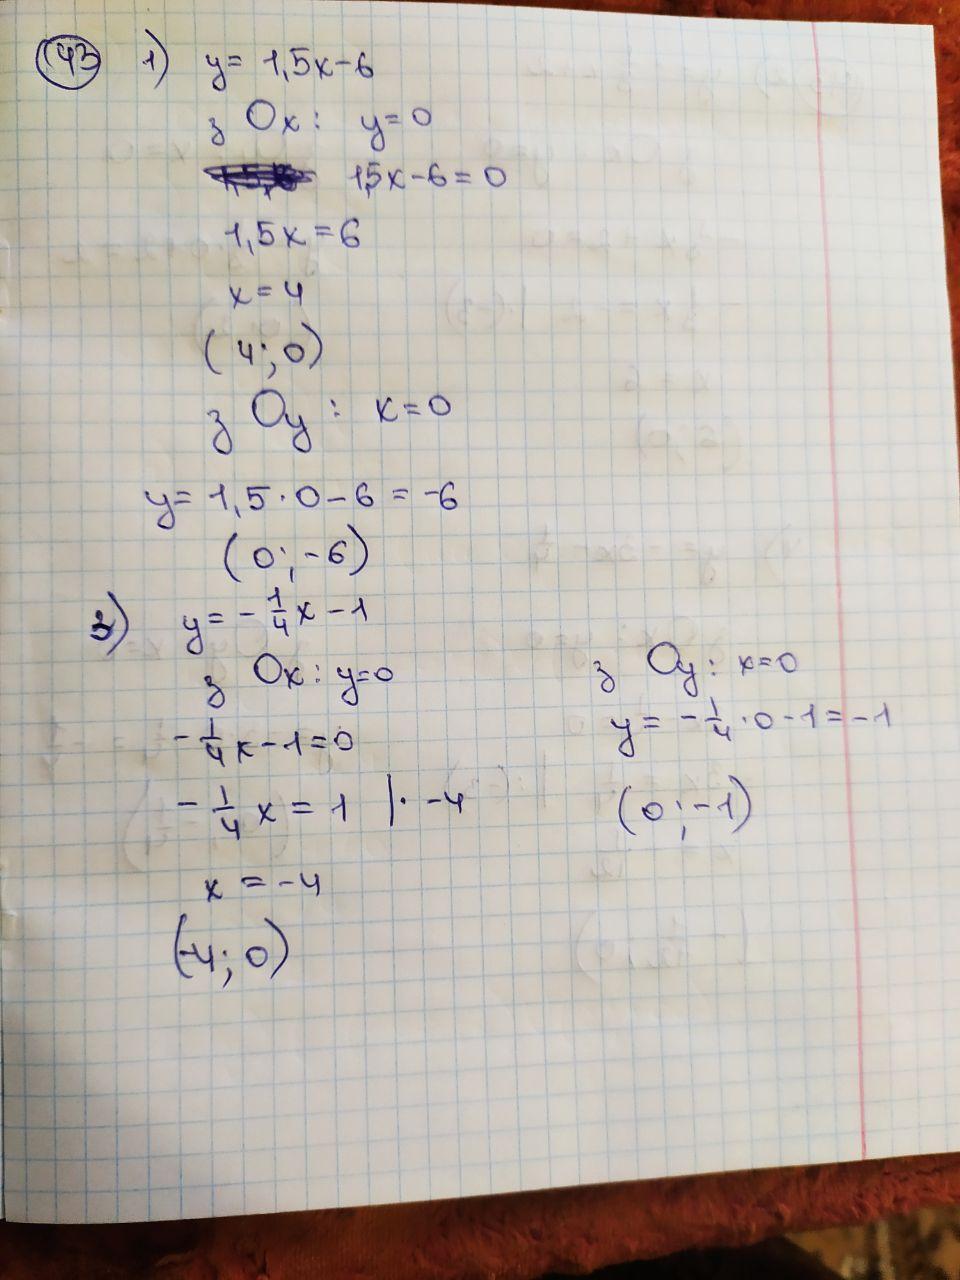 143 1) y = 1,5x - 6
з Ox: y = 0
1,5x - 6 = 0
1,5x = 6
x = 4
(4; 0)
з Oy: x = 0
y = 1,5 · 0 - 6 = -6
(0; -6)
2) y = -1/4 x - 1
з Ox: y = 0
-1/4 x - 1 = 0
-1/4 x = 1 | · -4
x = -4
(-4; 0)
з Oy: x = 0
y = -1/4 · 0 - 1 = -1
(0; -1)